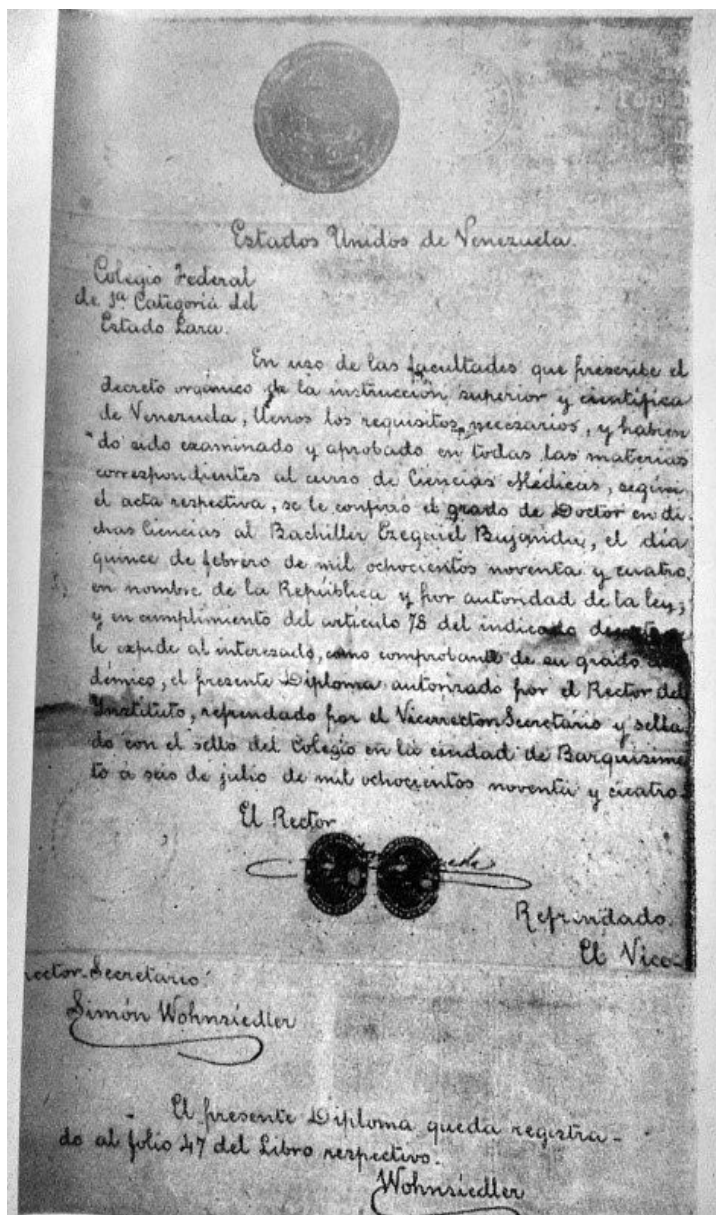 Estados Unidos de Venezuela.
Colegio Federal
de 1ª Categoría del
Estado Lara.
En uso de las facultades que prescribe el
decreto orgánico de la instrucción superior y científica
de Venezuela, llenos los requisitos necesarios, y habien
do sido examinado y aprobado en todas las materias
correspondientes al curso de Ciencias Médicas, según
el acta respectiva, se le confirió el grado de Doctor en di-
chas Ciencias al Bachiller Ezequiel Bujanda, el día
quince de febrero de mil ochocientos noventa y cuatro,
en nombre de la República y por autoridad de la ley;
y en cumplimiento del artículo 78 del indicado decreto se
le expide al interesado, como comprobante de su grado
démico, el presente Diploma autorizado por el Rector del
Instituto, refrendado por el Vicerrector Secretario y sella-
do con el sello del Colegio en la ciudad de Barquisime
to á seis de julio de mil ochocientos noventa y cuatro.
El Rector
Refrindado.
El Vice-
rector-Secretario
Simón Wohnsiedler
El presente Diploma queda registra-
do al folio 47 del Libro respectivo.
Wohnsiedler